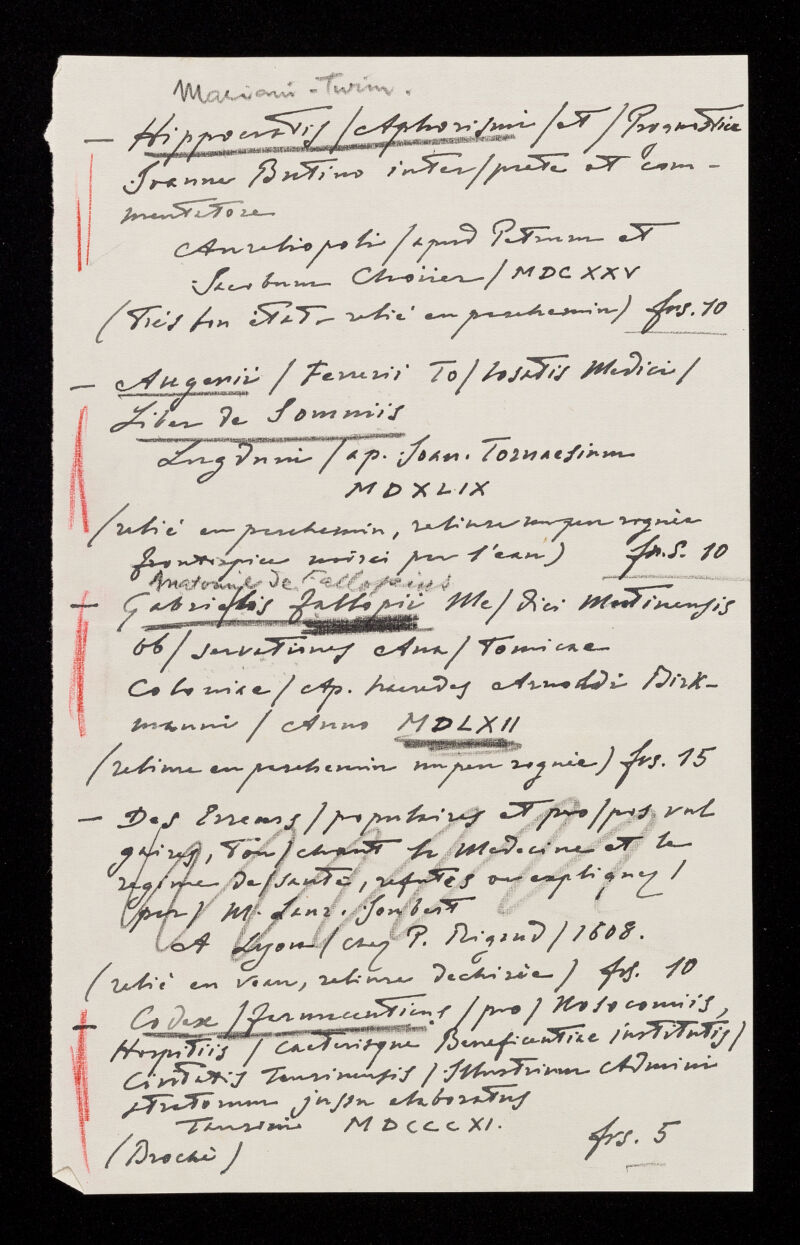 Mariani - Turin.
— Hippocratis / Aphorismi / et / Prognostica
Joanne Butino inter / prete et com-
mentatore
Aureliopoli / apud Petrum et
Jacobum Choüer / MDCXXV
(Très bon état - relié en parchemin) frs. 10
— Augerii / Ferrerii To / losatis Medici /
Liber de Somniis
Lugduni / ap. Joan. Tornaesium
MDXLIX
(relié en parchemin, reliure un peu rognée
frontispice noirci par l'eau) frs. 10
Anatomie de Fallopius
— Gabrielis Fallopii Me / dici Mutinensis
ob / servationes Ana / tomicae
Coloniae / Ap. haeredes Arnoldi Birk-
manni / Anno MDLXII
(reliure en parchemin un peu rognée) frs. 15
— Des Erreurs / populaires et pro / pos vul
gaires, tou / chant la Medecine et le
regime de santé, refutés ou expliquez /
par / M. Laur. Joubert
A Lyon / chez P. Rigaud / 1608.
(relié en veau, reliure dechirée) frs. 10
— Codex / farmaceuticus / pro / Nosocomiis,
Hospitiis / Caeterisque Beneficentiae institutis /
Civitatis Taurinensis / Illustrium Admini
stratorum jussu elaboratus
Taurini MDCCCXI.
(Broché) frs. 5